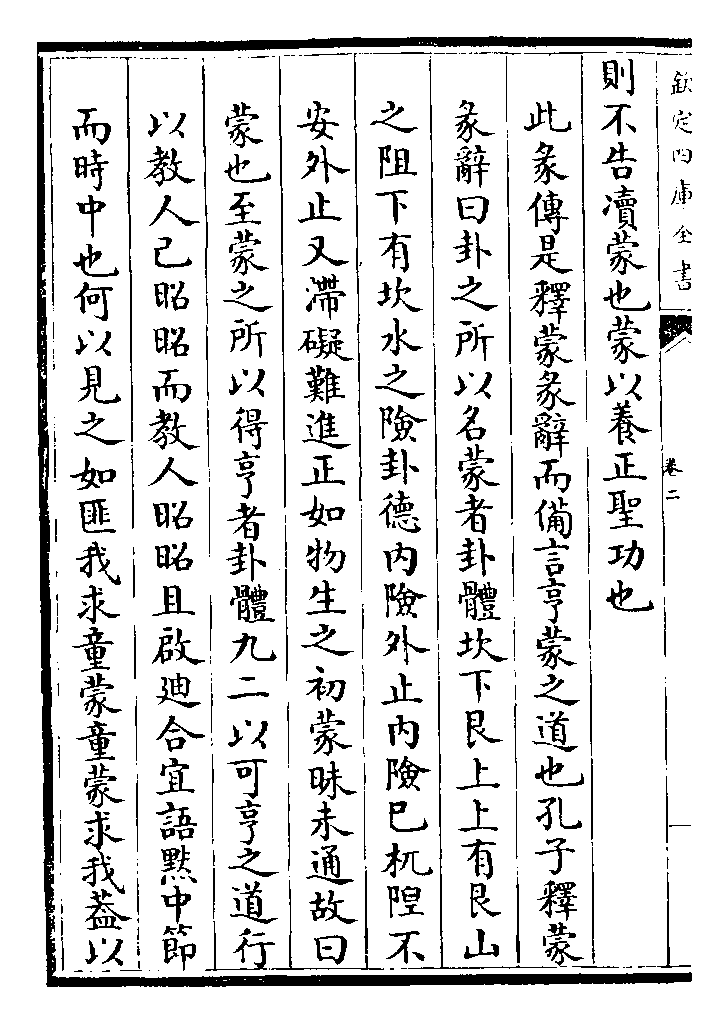 欽定四庫全書
卷二
則不告瀆蒙也蒙以養正聖功也
此彖傳是釋蒙彖辭而備言亨蒙之道也孔子釋蒙
彖辭曰卦之所以名蒙者卦體坎下艮上上有艮山
之阻下有坎水之險卦德内險外止内險已杌隉不
安外止又滯礙難進正如物生之初蒙昧未通故曰
蒙也至蒙之所以得亨者卦體九二以可亨之道行
以教人己昭昭而教人昭昭且啟廸合宜語黙中節
而時中也何以見之如匪我求童蒙童蒙求我葢以